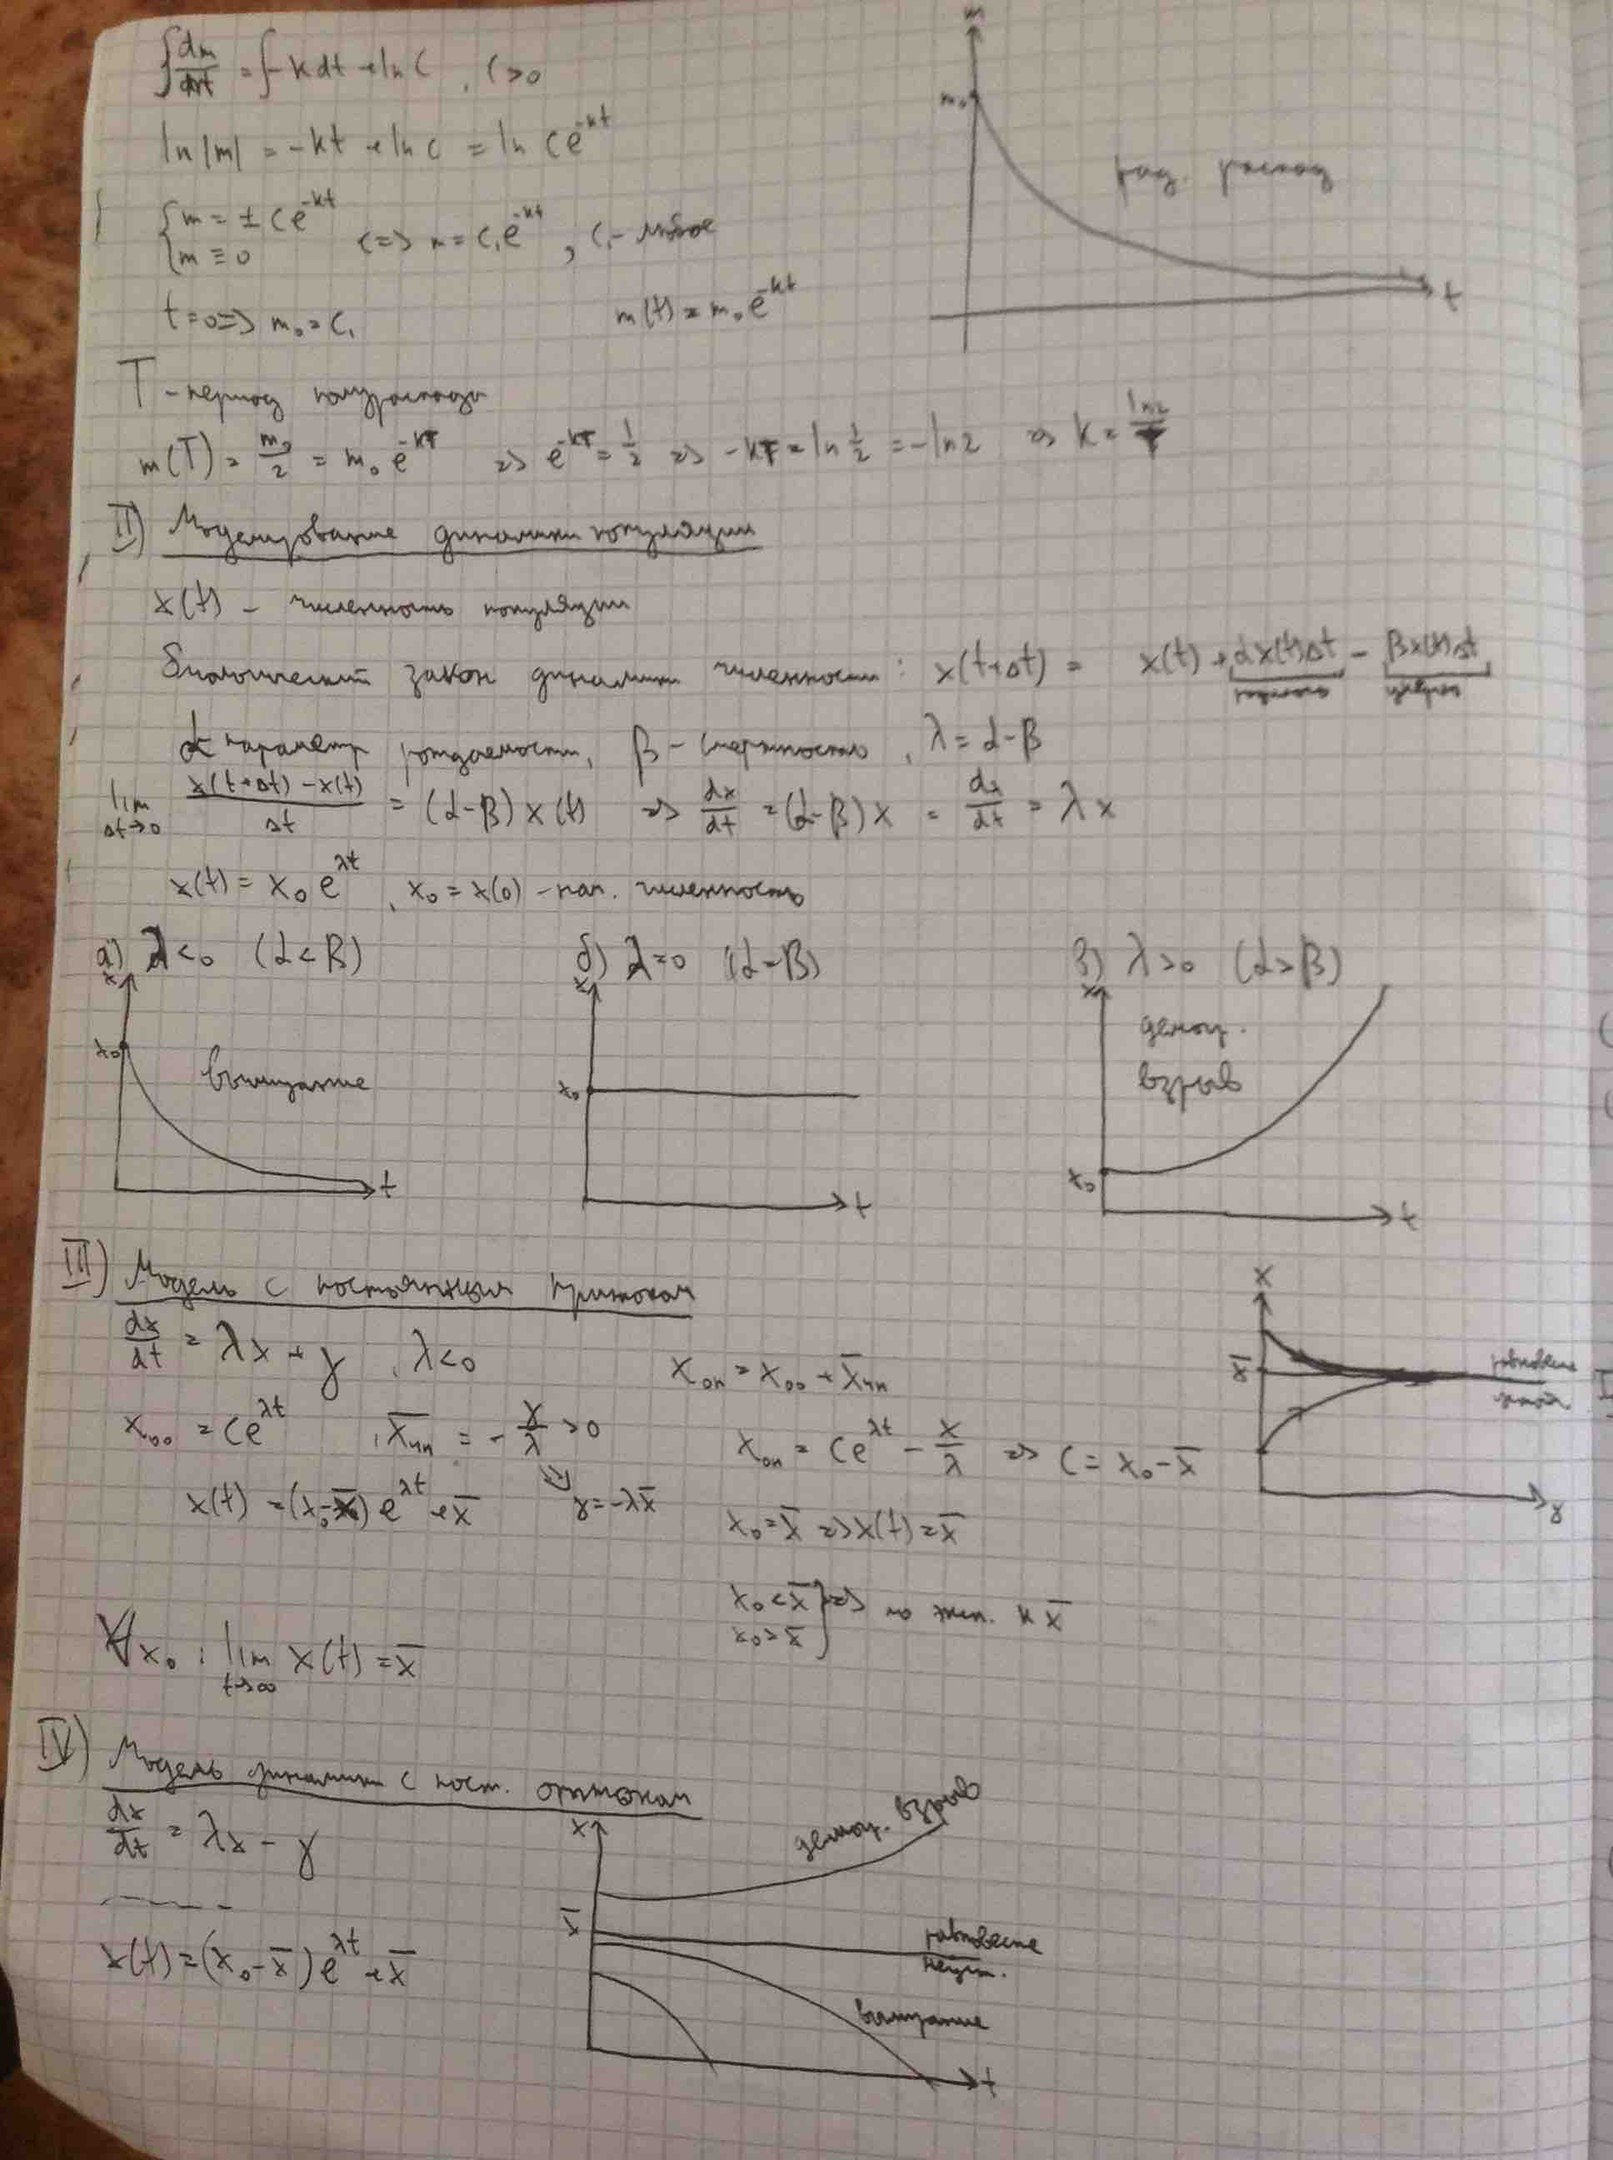 ∫dm/dt = ∫-kdt + ln C, C>0
ln|m| = -kt + ln C = ln Ce^{-kt}
{m = ± Ce^{-kt}
{m ≡ 0
<=> m = C₁e^{-kt}, C₁ - любое
t=0 => m₀ = C₁ m(t) = m₀e^{-kt}
m
m₀
рад. распад
t
T - период полураспада
m(T) = m₀/2 = m₀e^{-kT} => e^{-kT} = 1/2 => -kT = ln 1/2 = -ln2 => k = ln2/T
II) Моделирование динамики популяции
x(t) - численность популяции
Биологический закон динамики численности: x(t+Δt) = x(t) + αx(t)Δt - βx(t)Δt
α параметр рождаемости, β - смертность, λ = α-β
lim Δt→0 x(t+Δt) - x(t)/Δt = (α-β)x(t) => dx/dt = (α-β)x = dx/dt = λx
x(t) = x₀e^{λt}, x₀ = x(0) - нач. численность
а) λ<0 (α<β)
x
x₀
вымирание
t
б) λ=0 (α=β)
x
x₀
t
в) λ>0 (α>β)
x
демогр.
взрыв
x₀
t
III) Модель с постоянным притоком
dx/dt = λx + γ, λ<0
x_оо = Ce^{λt}, x̄_чн = -γ/λ > 0
γ = -λx̄
x(t) = (x₀-x̄)e^{λt} + x̄
x_он = x_оо + x̄_чн
x_он = Ce^{λt} - γ/λ => C = x₀ - x̄
x₀ = x̄ => x(t) = x̄
x₀ < x̄
x₀ > x̄
} => по эксп. к x̄
x
x̄
равновесие
γ
∀x₀: lim t→∞ x(t) = x̄
IV) Модель динамики с пост. оттоком
dx/dt = λx - γ
x(t) = (x₀-x̄)e^{λt} + x̄
x
демогр. взрыв
x̄
равновесие
неуст.
вымирание
t